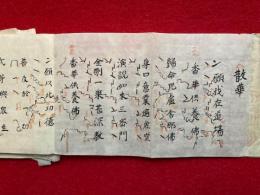 散華
願我在道場
香華供養佛
歸命毘盧舎那佛
身口意業遍虚空
演説如来三密門
金剛一乗甚深教
香華供養佛
願以此功徳
普及於一切
我等與衆生